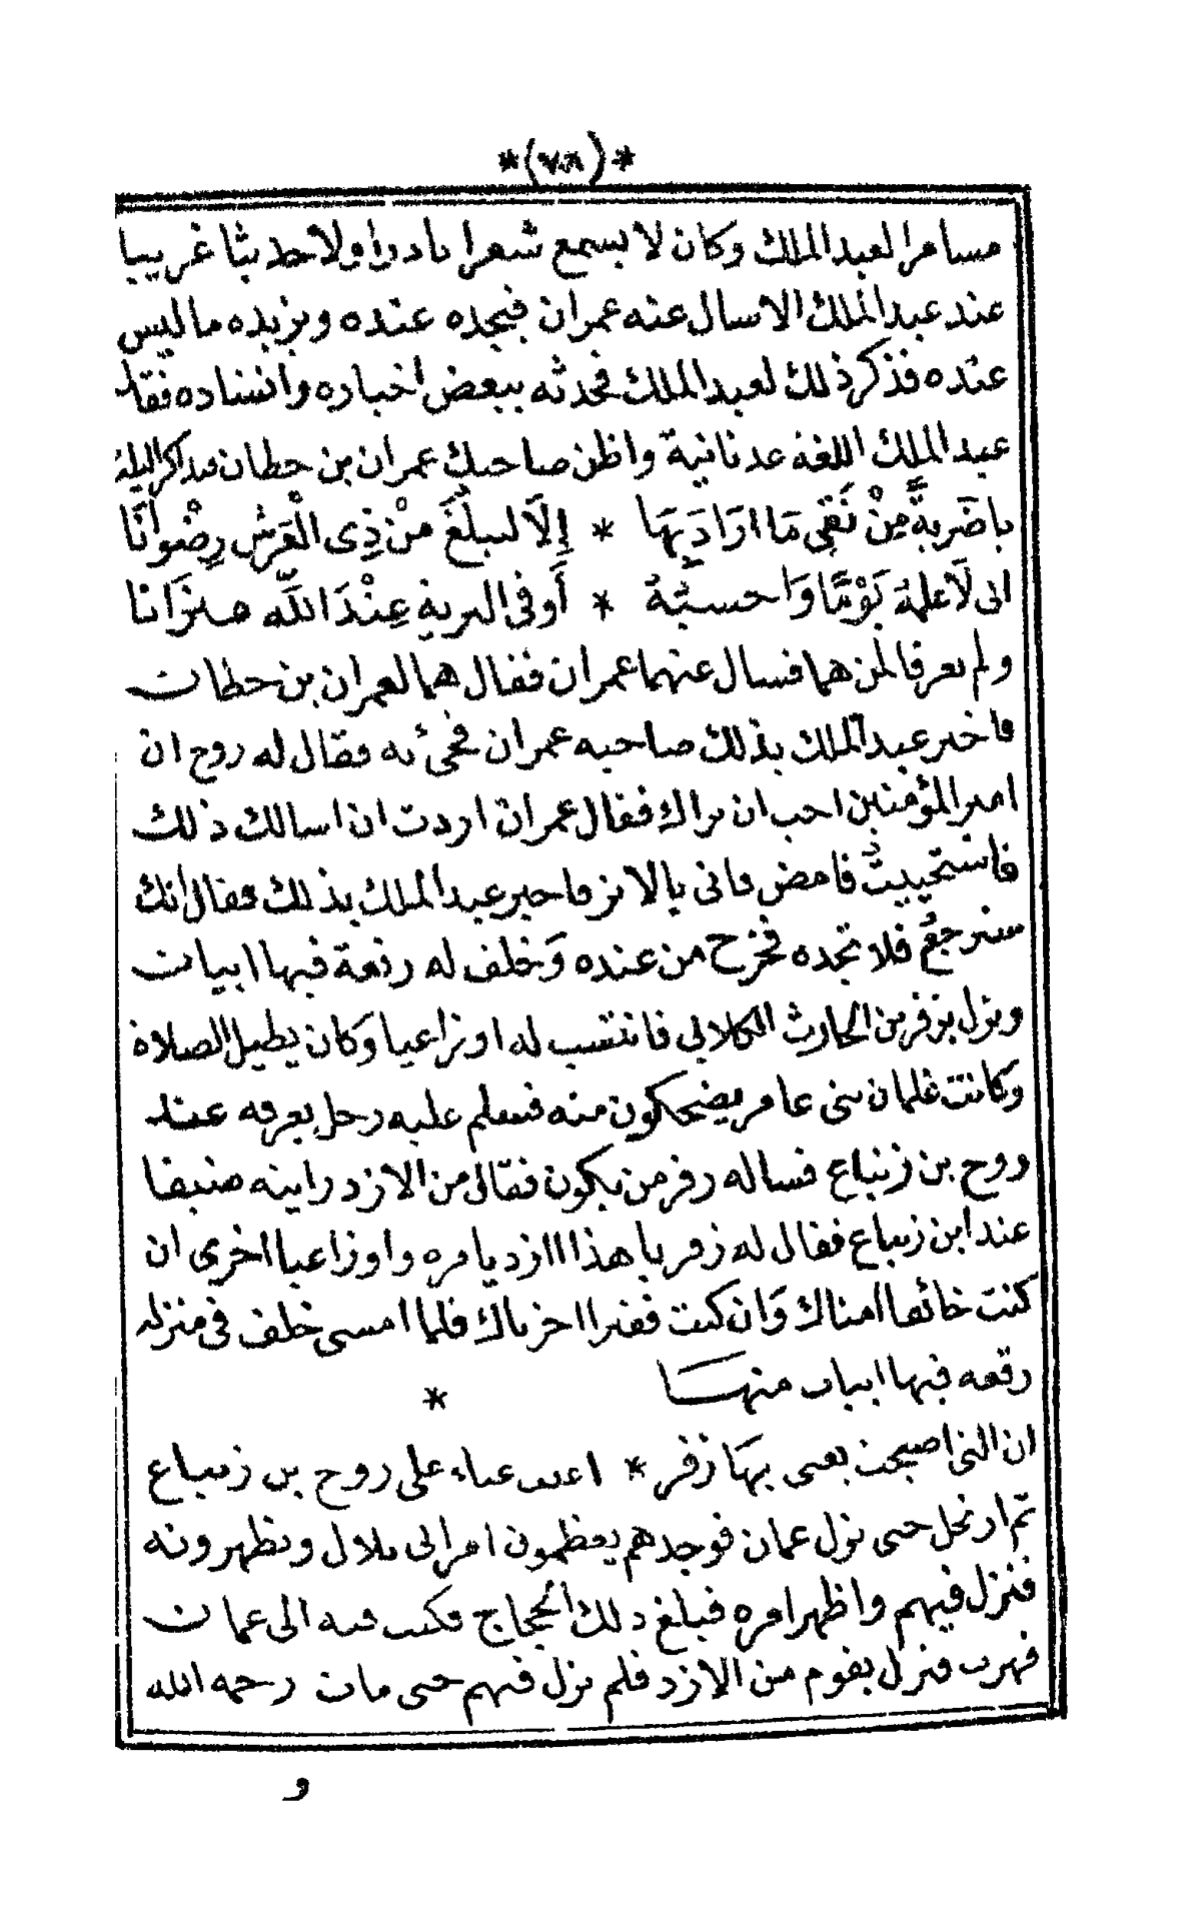 *(٧٨)*
مسامرا لعبد الملك وكان لا يسمع شعرا نادرا ولا حديثا غريبا
عند عبد الملك الا سال عنه عمران فيجده عنده ويزيده ما ليس
عنده فذكر ذلك لعبد الملك فحدثه ببعض اخباره وانشاده فقال
عبد الملك اللغة عدنانية واظن صاحبك عمران بن حطان فذاكر الليلة
يا ضَربةً مِنْ تَقِى مَا ارَادَ بِهَا * إِلاَّ لِيبلُغَ مِنْ ذِى الْعَرْشِ رِضْوانَا
انى لَاعلمه يَوْمًا وَاحسبُهُ * أَوفى البرية عِنْدَ اللَّه ميزَانا
ولم يعرفا لمن هما فسال عنهما عمران فقال هما لعمران بن حطان
فاخبر عبد الملك بذلك صاحبه عمران فجئ به فقال له روح ان
امير المؤمنين احب ان يراك فقال عمران اردت ان اسالك ذلك
فاستحييت فامض فانى بالاثر فاخبر عبد الملك بذلك فقال انك
سترجع فلا تجده فخرج من عنده وخلف له رقعة فيها ابيات
ونزل بزفر بن الحارث الكلابي فانتسب له اوزاعيا وكان يطيل الصلاة
وكانت غلمان بنى عامر يضحكون منه فسلم عليه رجل يعرفه عند
روح بن زنباع فساله زفر من يكون فقال من الازد رايته ضيفا
عند ابن زنباع فقال له زفر يا هذا اازديا مره واوزاعيا اخرى ان
كنت خائفا امناك وان كنت فقيرا اخبرناك فلما امسى خلف فى منزله
رقعه فيها ابيات منها *
ان التى اصبحت يعيى بِهَا زفر * اعيت عياء على روح بن زنباع
ثم ارتحل حتى نزل عمان فوجدهم يعظمون امر ابى بلال ويظهرونه
فنزل فيهم واظهر امره فبلغ ذلك الحجاج فكتب فيه الى عمان
فهرب فنزل بقوم من الازد فلم يزل فيهم حتى مات رحمه الله
و